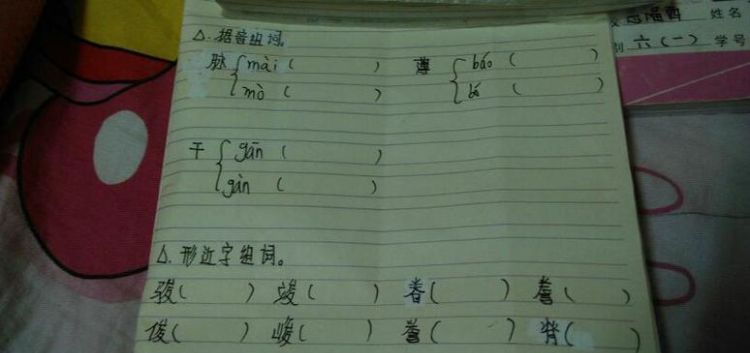 △.据音组词。
脉 { mài ( )
mò ( )
薄 { báo ( )
bó ( )
干 { gān ( )
gàn ( )
△.形近字组词。
骏( ) 竣( ) 眷( ) 誊( )
俊( ) 峻( ) 誉( )
姓名
六(一) 学号